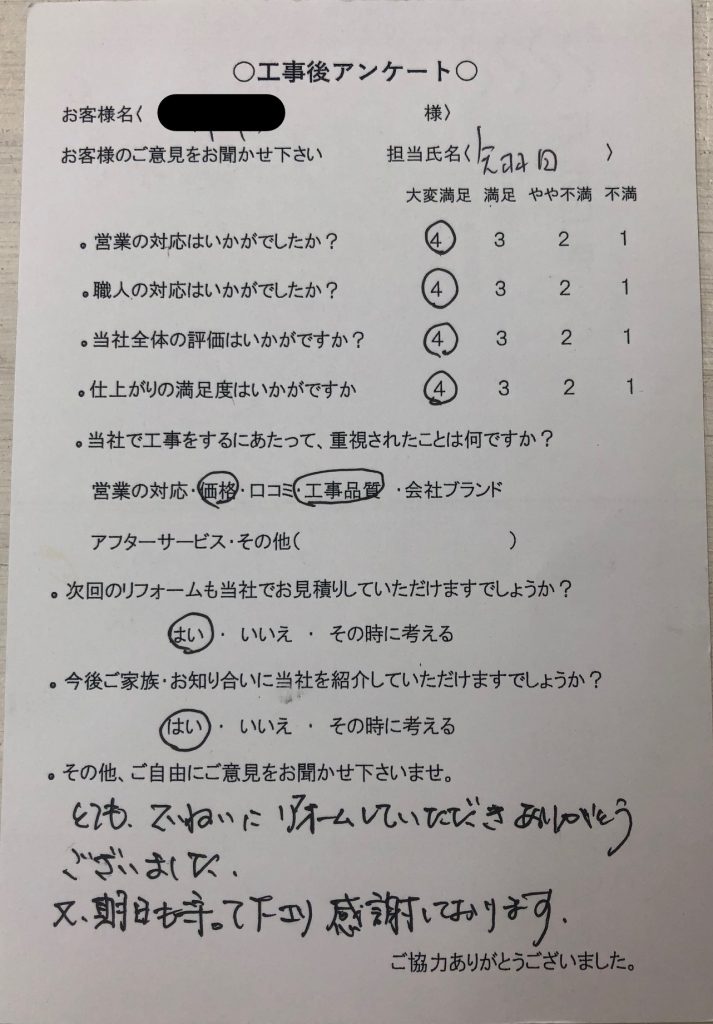 ○工事後アンケート○
お客様名〈 様〉
お客様のご意見をお聞かせ下さい 担当氏名〈 〉
大変満足 満足 やや不満 不満
。営業の対応はいかがでしたか？ 4 3 2 1
。職人の対応はいかがでしたか？ 4 3 2 1
。当社全体の評価はいかがですか？ 4 3 2 1
。仕上がりの満足度はいかがですか 4 3 2 1
。当社で工事をするにあたって、重視されたことは何ですか？
営業の対応・価格・口コミ・工事品質・会社ブランド
アフターサービス・その他（ ）
。次回のリフォームも当社でお見積りしていただけますでしょうか？
はい ・ いいえ ・ その時に考える
。今後ご家族・お知り合いに当社を紹介していただけますでしょうか？
はい ・ いいえ ・ その時に考える
。その他、ご自由にご意見をお聞かせ下さいませ。
とても、ていねいに リフォームしていただきありがとう
ございました、
又、期日も守って下さり 感謝しております、
ご協力ありがとうございました。